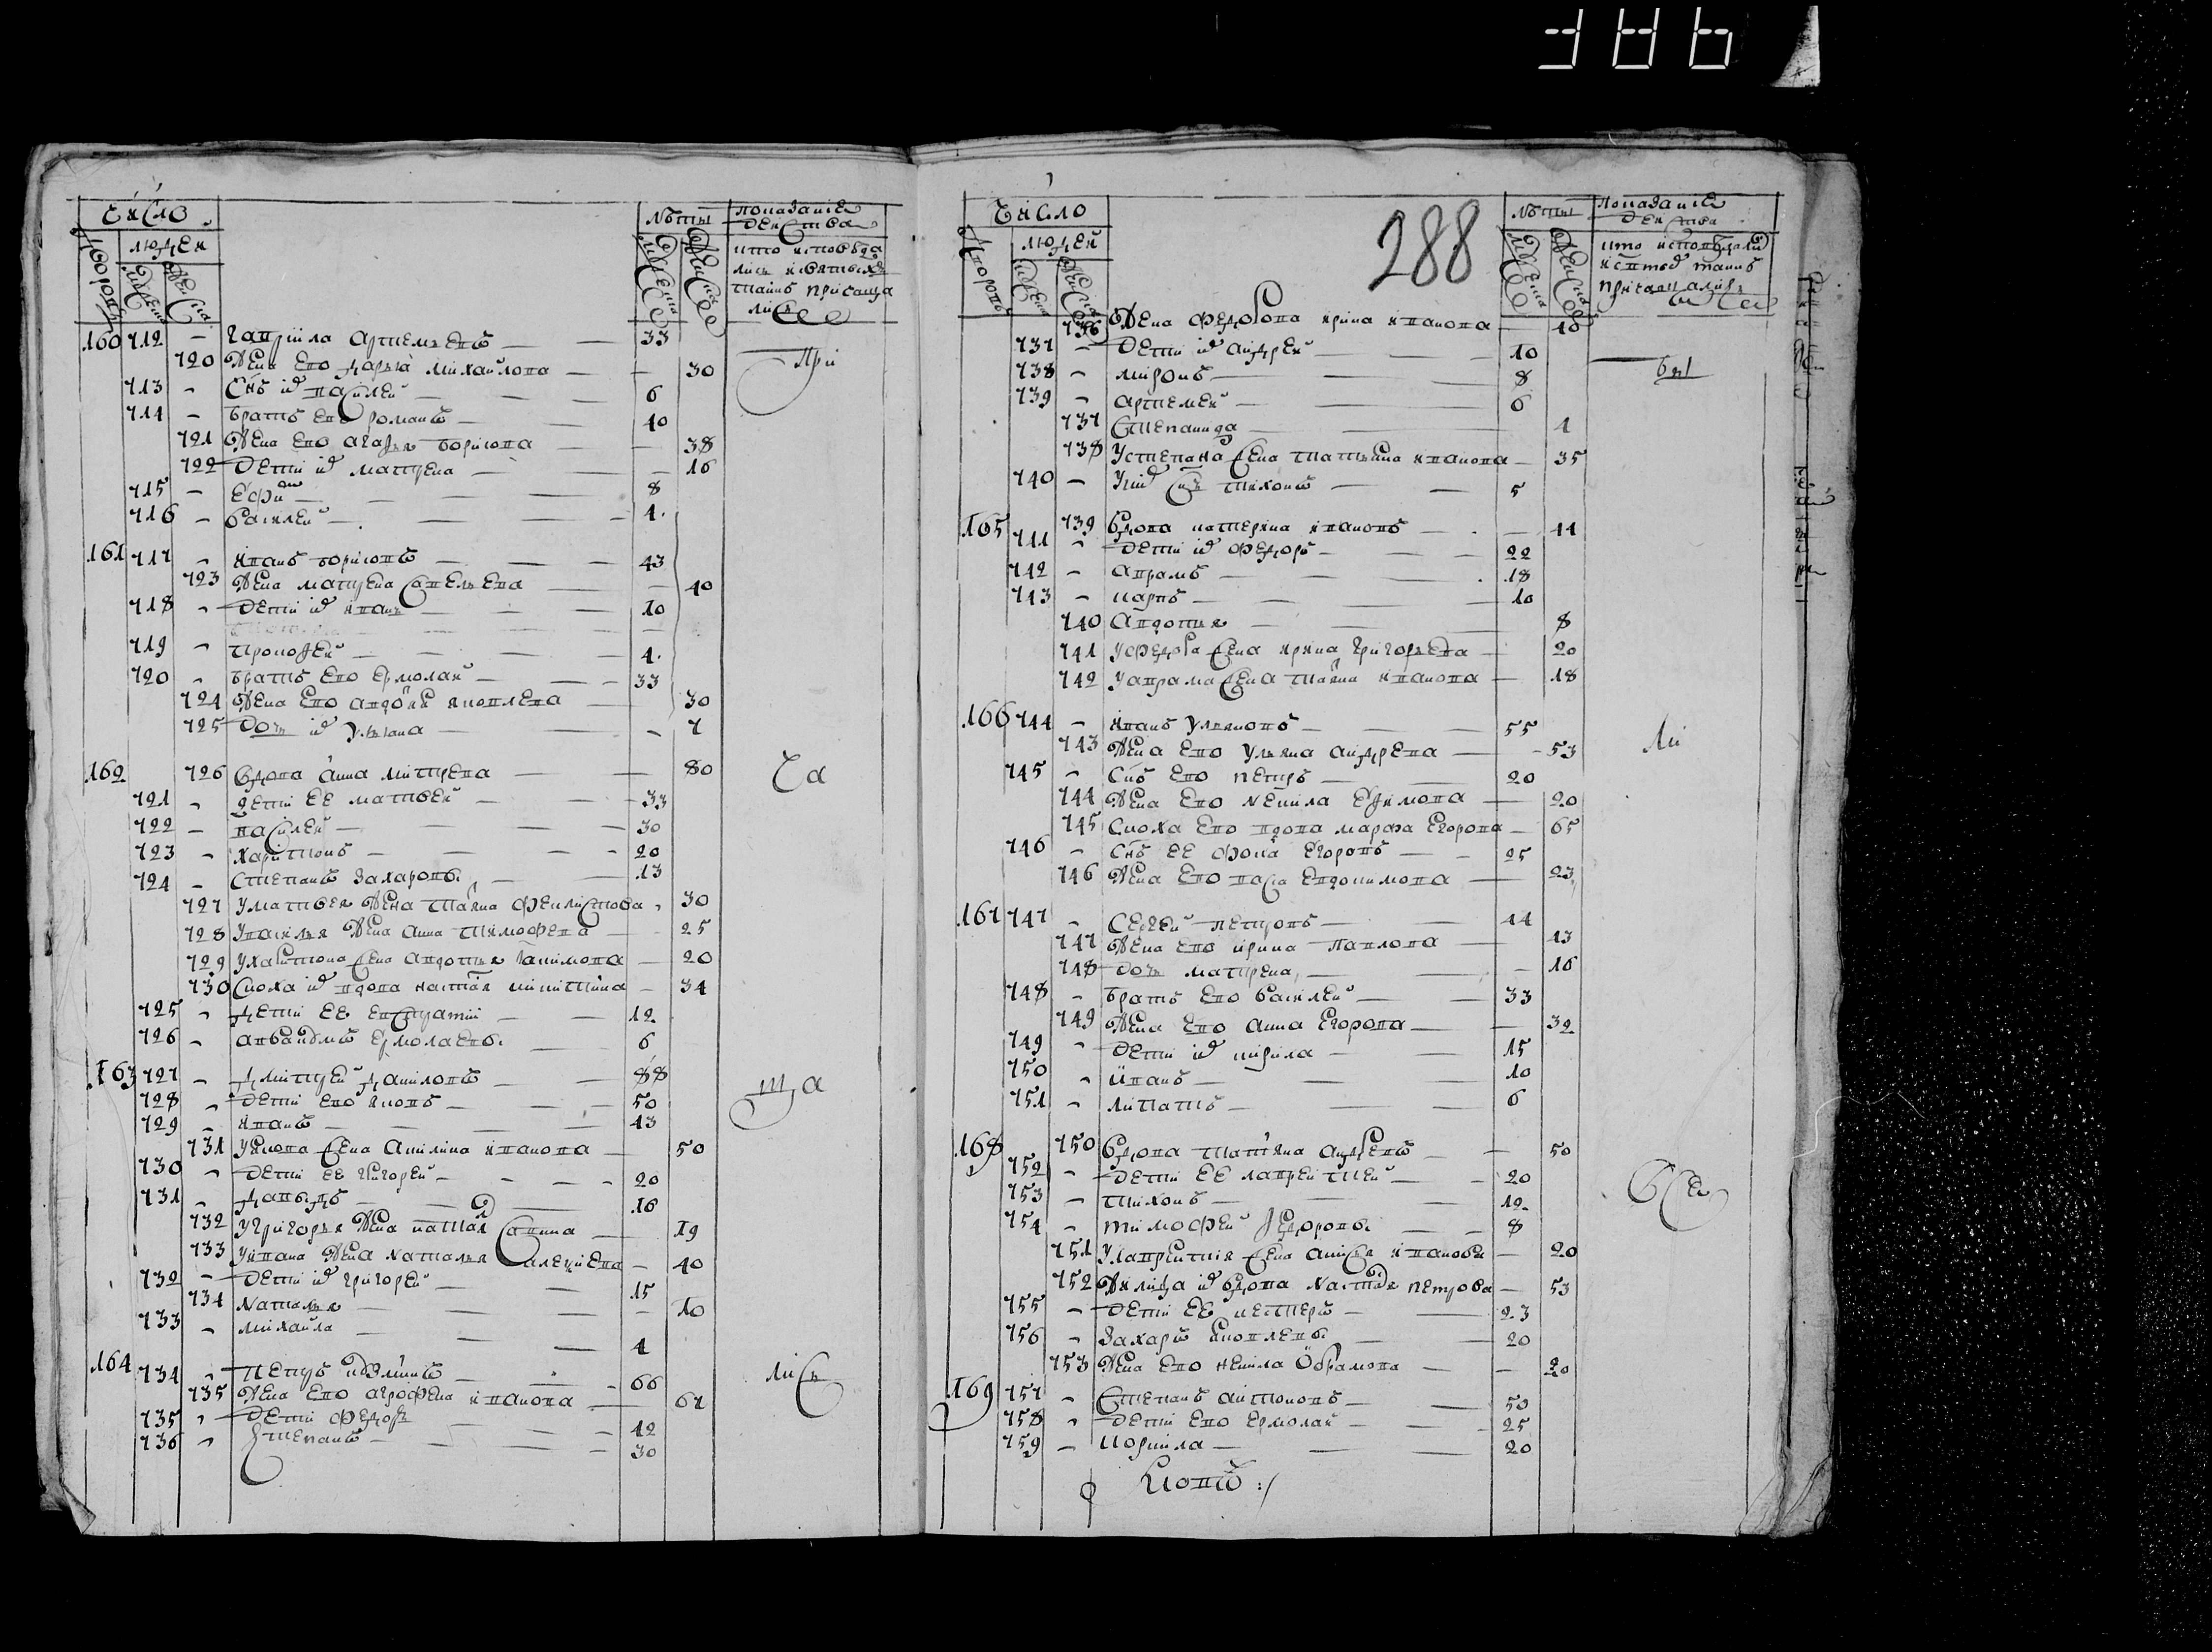 число
лѣты
показание
действа
дворовъ
людей
мужеска
женска
кто исповѣда
лись и святыхъ
таинъ прича­ща
лись
160 712 – гаврила артемьевъ — 33
720 жена ево дарья михайлова — 30
При
713 – снъ их василей — 6
714 – братъ ево романъ — 40
721 жена ево агафья борисова — 38
722 дети их матрена — 16
715 – ефим — 8
716 – василей — 4
161 717 – иванъ борисовъ — 43
723 жена матрена савельева — 40
718 – дети их иванъ — 10
719 – прокофей — 4
720 – братъ ево ермолай — 33
724 жена ево авдотья яковлева — 30
725 дочь их ульяна — 7
162 726 вдова анна митрева — 80
ча
721 – дети ее матвей — 33
722 – василей — 30
723 – харитонъ — 20
724 – степанъ захаровъ — 13
727 у матвея жена татьяна феклистова — 30
728 у василья жена анна тимофева — 25
729 у харитона жена авдотья — 20
730 сноха их вдова настасья никитина — 34
725 – дети ее евстратий — 12
726 – ермолаевъ — 6
163 727 – дмитрей даниловъ — 88
ща
728 – дети ево яковъ — 50
729 – иванъ — 43
731 у якова жена акилина иванова — 50
730 – дети ее григорей — 20
731 – давыдъ — 16
732 у григорья жена наталья савина — 19
733 у ивана жена наталья алексиева — 40
732 – дети их григорей — 15
734 наталья — 10
733 – михайла — 4
164 734 – петръ — 66
лись
735 жена ево агрофена иванова — 67
735 – дети федоръ — 42
736 – степанъ — 30
386
288
число
лѣты
показание
действа
дворовъ
людей
мужеска
женска
кто исповѣдали
и стыхъ таинъ
причащались
736 жена федорова ирина иванова — 40
737 – дети их андрей — 10
бы
738 – миронъ — 8
739 – артемей — 6
737 степанида — 1
738 у степана жена татьяна иванова — 35
740 – у них снъ тихонъ — 5
165 739 вдова катерина иванова — 44
741 – дети их федоръ — 22
742 – аврамъ — 18
743 – карпъ — 10
740 авдотья — 8
741 у федора жена ирина григорьева — 20
742 у аврама жена татьяна иванова — 18
166 744 – иванъ ульяновъ — 55
ли
743 жена ево ульяна андрева — 53
745 – снъ ево петръ — 20
744 жена ево ненила ефимова — 20
745 сноха ево вдова марфа егорова — 65
746 – снъ ее фока егоровъ — 25
746 жена ево васа евдокимова — 23
167 747 – сергей петровъ — 44
747 жена ево ирина павлова — 43
748 дочь матрена — 16
748 – братъ ево василей — 33
749 жена ево анна егорова — 32
749 – дети их кирила — 15
750 – иванъ — 10
751 – игнатъ — 6
168 750 вдова татьяна андрева — 50
752 – дети ее лаврентей — 20
все
753 – тихонъ — 12
754 – тимофей федоровы — 8
751 у лаврентия жена анисья иванова — 20
752 их вдова настасья петрова — 53
755 – дети ее нестеръ — 23
756 – захаръ яковлевы — 20
753 жена ево ненила абрамова — 20
169 757 – степанъ антоновъ — 50
758 – дети ево ермолай — 25
759 – корнила — 20
яковъ